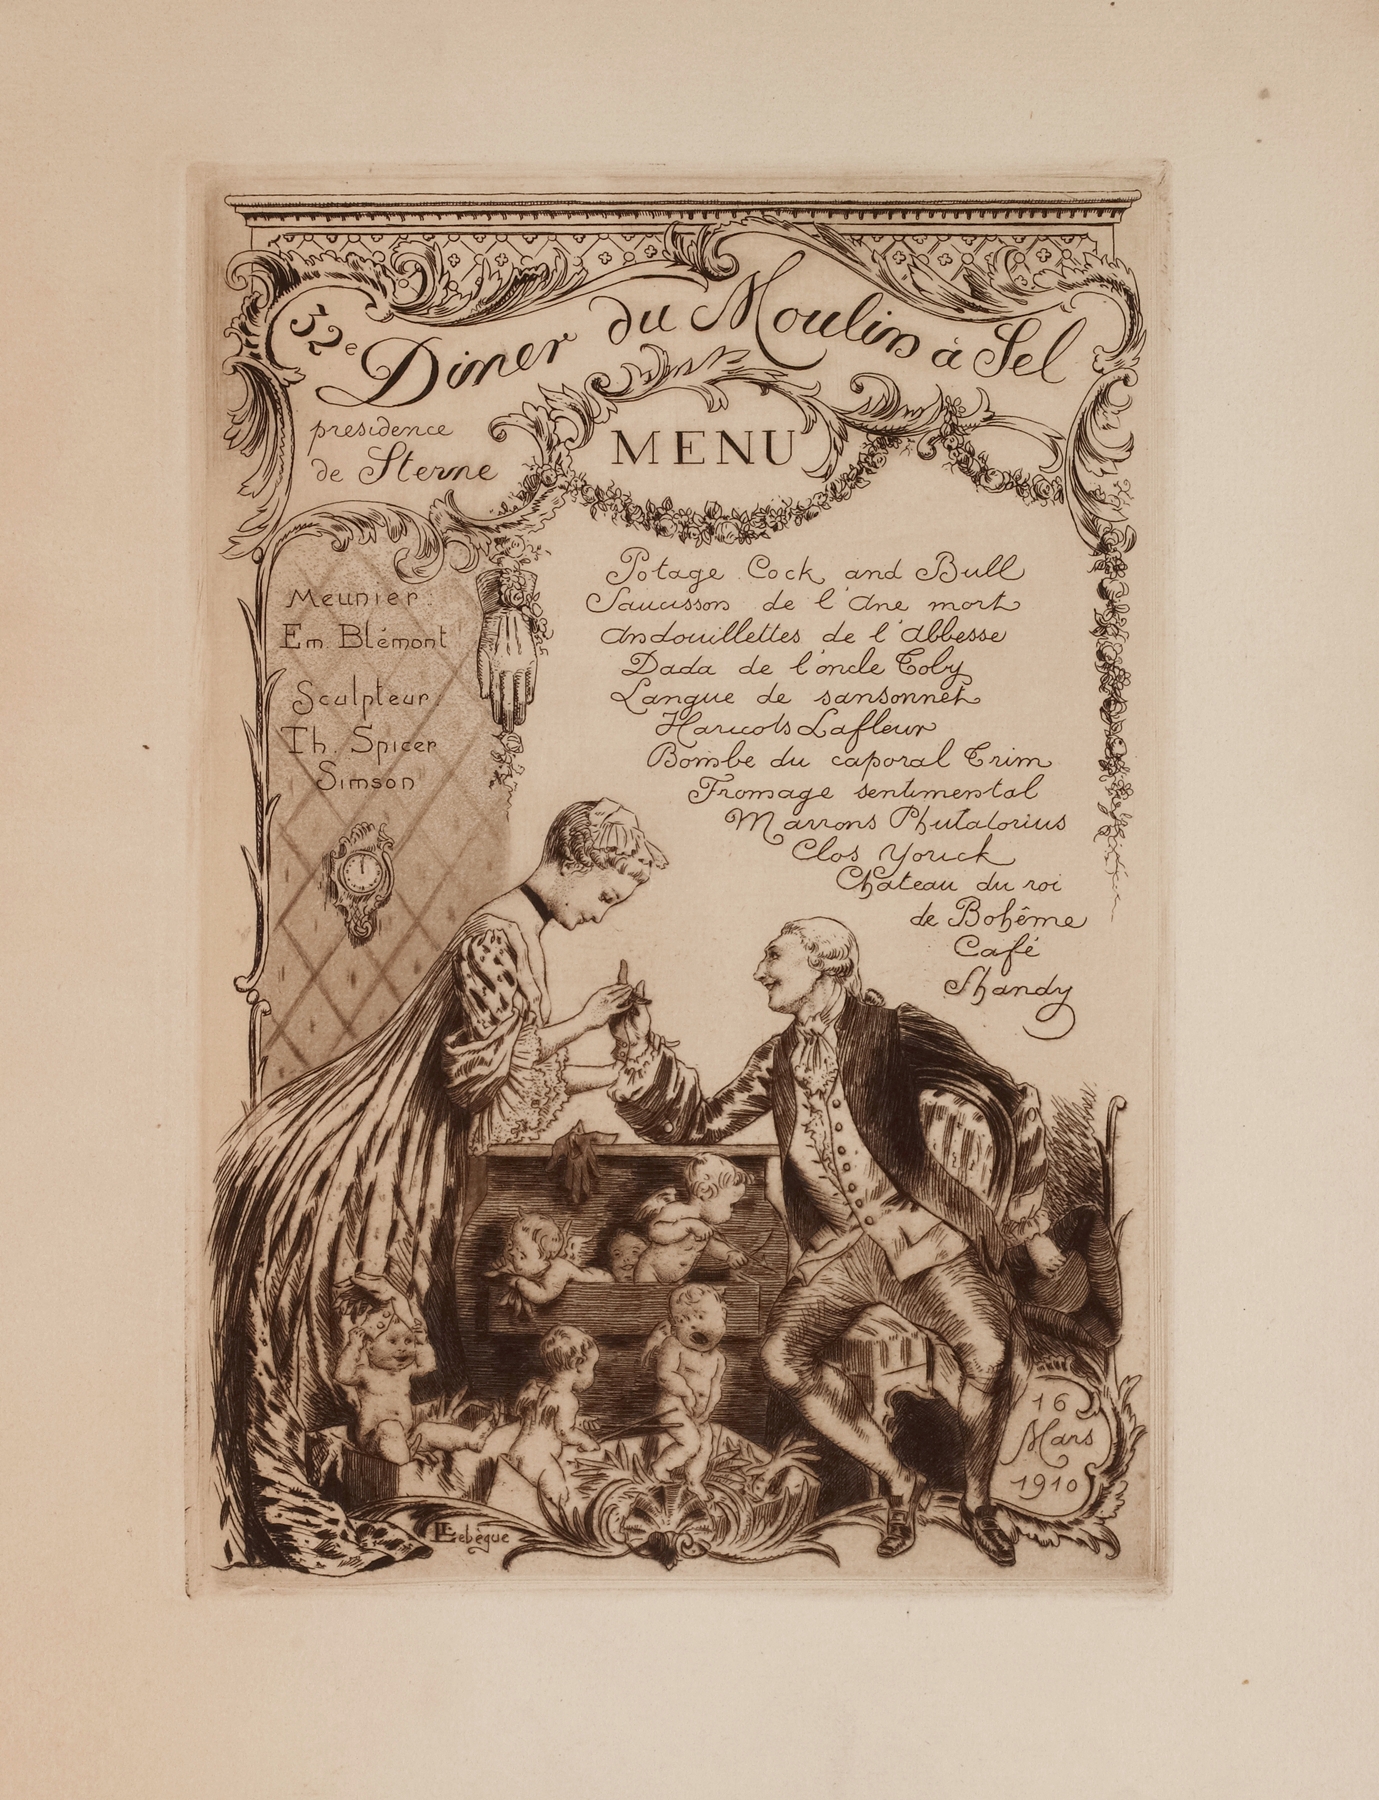 32e Diner du Moulin à Sel
presidence
de Sterne
MENU
Meunier:
Em. Blémont
Sculpteur:
Th. Spicer
Simson
Potage Cock and Bull
Saucisson de l'Ane mort
Andouillettes de l'Abbesse
Dada de l'oncle Toby
Langue de sansonnet
Haricots Lafleur
Bombe du caporal Trim
Fromage sentimental
Marrons Phutatorius
Clos Yorick
Chateau du roi
de Bohême
Café
Shandy
16
Mars
1910
Lebègue